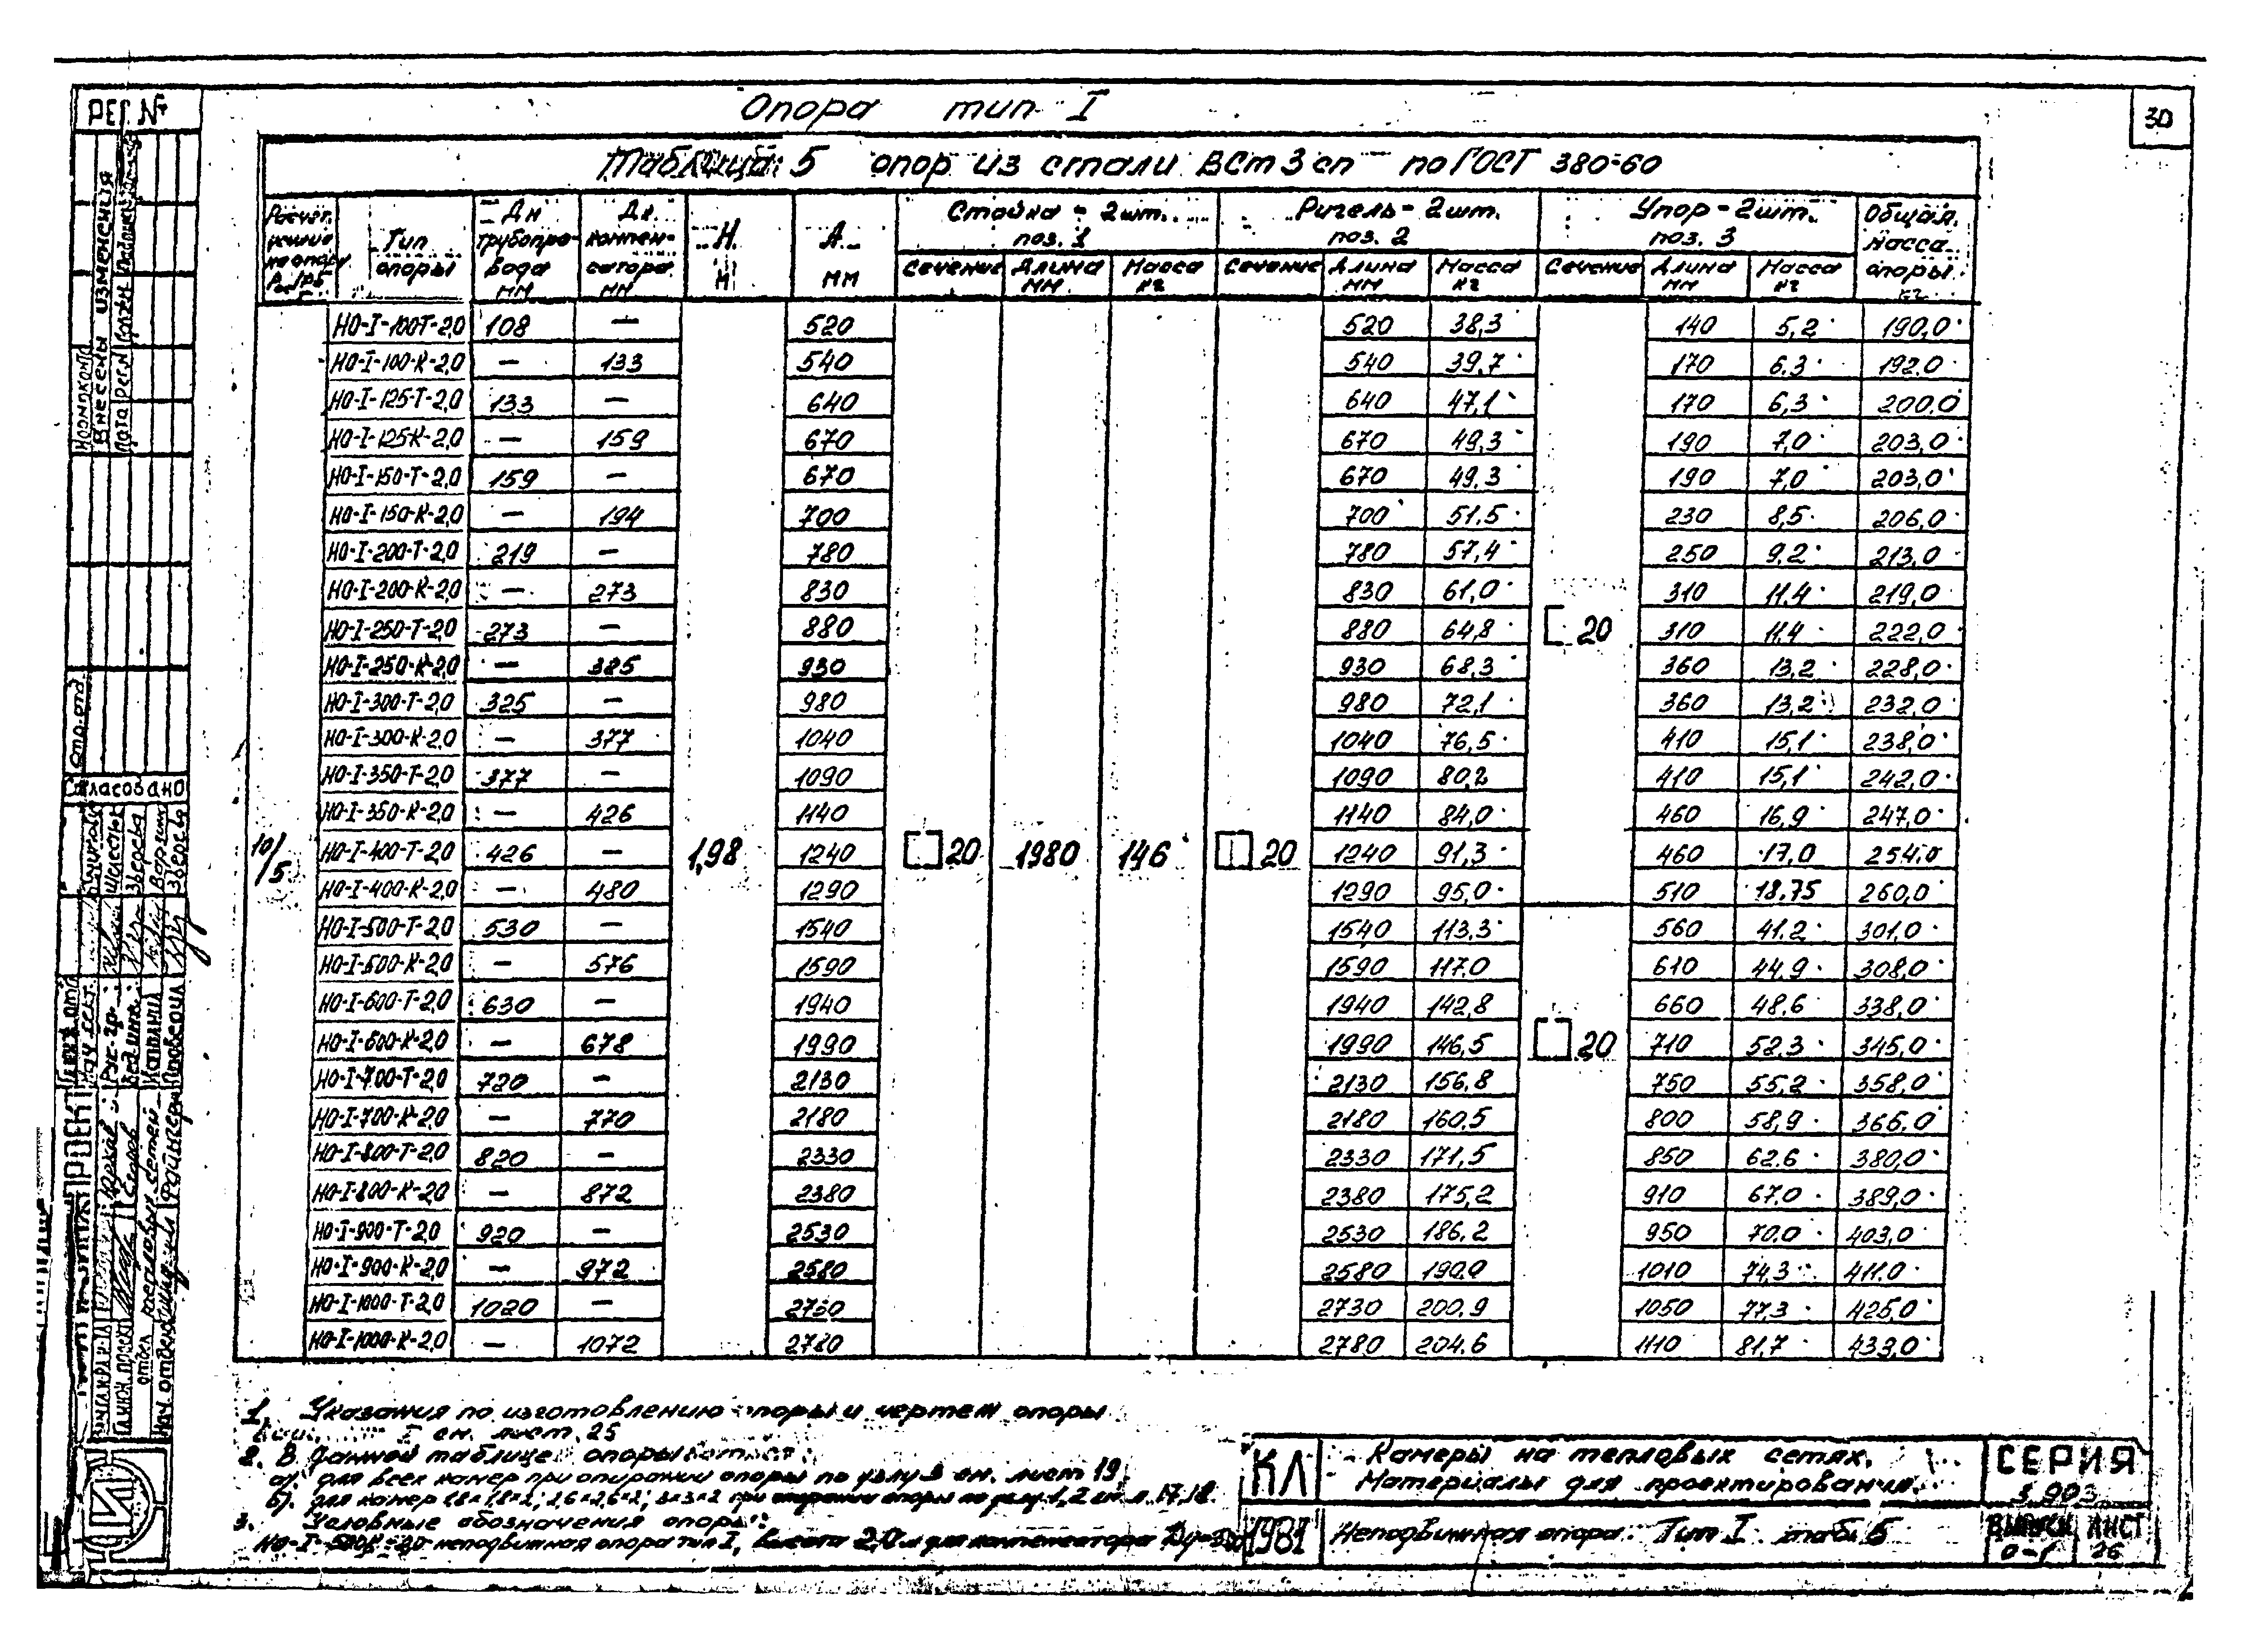 РЕГ. №
Опора тип I
30
Таблица 5 опор из стали ВСт3сп по ГОСТ 380-60
Тип опоры
Дн трубопровода мм
Дн. компенсатора мм
Н. м
А. мм
Стойка - 2шт. поз. 1
Ригель - 2шт. поз. 2
Упор - 2шт. поз. 3
Общая масса опоры кг
Сечение Длина мм Масса кг Сечение Длина мм Масса кг Сечение Длина мм Масса кг
НО-I-100Т-2,0 108 — 520 520 38,3 140 5,2 190,0
НО-I-100-К-2,0 — 133 540 540 39,7 170 6.3 192.0
НО-I-125-Т-2,0 133 — 640 640 47,1 170 6,3 200.0
НО-I-125К-2,0 — 159 670 670 49,3 190 7,0 203,0
НО-I-150-Т-2,0 159 — 670 670 49.3 190 7,0 203,0
НО-I-150-К-2,0 — 194 700 700 51.5 230 8,5 206,0
НО-I-200-Т-2,0 219 — 780 780 57,4 250 9,2 213,0
НО-I-200-К-2,0 — 273 830 830 61,0 310 11.4 219,0
НО-I-250-Т-2,0 273 — 880 880 64,8 [ 20 310 11.4 222,0
НО-I-250-К-2,0 — 325 930 930 68,3 360 13,2 228,0
НО-I-300-Т-2,0 325 — 980 980 72,1 360 13,2 232,0
НО-I-300-К-2,0 — 377 1040 1040 76,5 410 15,1 238,0
НО-I-350-Т-2,0 377 — 1090 1090 80,2 410 15,1 242,0
НО-I-350-К-2,0 — 426 1140 1140 84,0 460 16,9 247,0
10/5 НО-I-400-Т-2,0 426 — 1,98 1240 [] 20 1980 146 [] 20 1240 91,3 460 17,0 254,0
НО-I-400-К-2,0 — 480 1290 1290 95,0 510 18.75 260,0
НО-I-500-Т-2,0 530 — 1540 1540 113.3 560 41.2 301.0
НО-I-500-К-2,0 — 576 1590 1590 117.0 610 44.9 308,0
НО-I-600-Т-2,0 630 — 1940 1940 142,8 660 48.6 338,0
НО-I-600-К-2,0 — 678 1990 1990 146,5 [] 20 710 52.3 345,0
НО-I-700-Т-2,0 720 — 2130 2130 156,8 750 55,2 358,0
НО-I-700-К-2,0 — 770 2180 2180 160,5 800 58,9 366,0
НО-I-800-Т-2,0 820 — 2330 2330 171,5 850 62.6 380,0
НО-I-800-К-2,0 — 872 2380 2380 175,2 910 67.0 389,0
НО-I-900-Т-2,0 920 — 2530 2530 186.2 950 70.0 403,0
НО-I-900-К-2,0 — 972 2580 2580 190.0 1010 74,3 411.0
НО-I-1000-Т-2,0 1020 — 2730 2730 200.9 1050 77,3 425,0
НО-I-1000-К-2,0 — 1072 2780 2780 204.6 1110 81,7 433,0
1. Указания по изготовлению опоры и чертеж опоры
I см. лист. 25
2. В данной таблице опоры
а) для всех камер при опирании опоры по узлу 3 см. лист 19.
б) для камер 1,8×1,8×2; 2,6×2,6×2; 3×3×2 при опирании опоры по узлу 1, 2 см. л. 17,18.
3. Условные обозначения опоры:
неподвижная опора тип I, высота 2,0 м для компенсатора
КЛ
1981
Камеры на тепловых сетях.
Материалы для проектирования.
Неподвижная опора. Тип I. табл. 5
СЕРИЯ
3.903
ВЫПУСК ЛИСТ
0-1 26
Внесены изменения
Согласовано